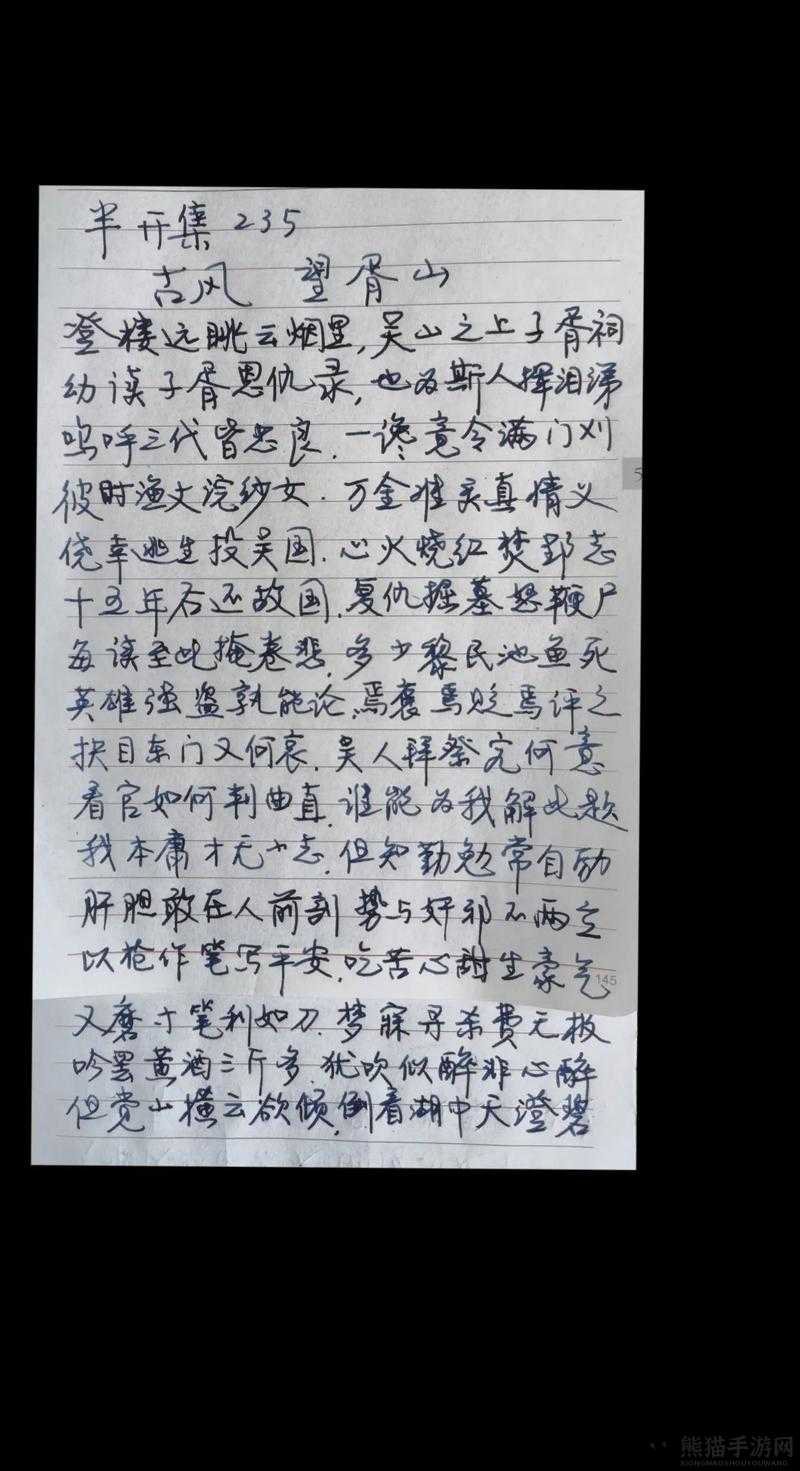 半开集 235
古风 望胥山
登楼远眺云烟里,吴山之上子胥祠
幼读子胥恩仇录,也为斯人挥泪涕
呜呼三代皆忠良.一谗竟令满门刈
彼时渔丈浣纱女.万金难买真情义
侥幸逃生投吴国.心火烧红焚郢志
十五年后还故国.复仇掘墓怒鞭尸
每读至此掩卷悲.多少黎民池鱼死
英雄强盗孰能论.焉褒焉贬焉评之
抉目东门又何哀.吴人拜祭究何意
看官如何判曲直.谁能为我解此题
我本庸才无大志.但知勤勉常自励
肝胆敢在人前剖 势与奸邪不两立
以枪作笔写平安.吃苦心甜生豪气
145
又磨寸笔利如刀.梦寐寻杀费无极
吟罢黄酒三斤多.犹吹似醉非心醉
但觉山横云欲倾.倒看湖中天澄碧
熊猫手游网
XIONGMAOSHOUYOUWANG